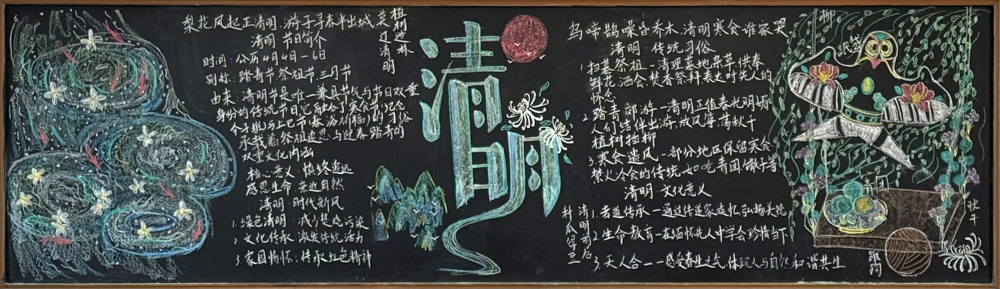 梨花风起正清明,游子寻春半出城
清明 节日简介
时间:公历4月4日—6日
别称:踏青节 祭祖节 三月节
由来:清明节是唯一兼具节气与节日双重
身份的传统节日,它融合了寒食节(纪念
介子推)与上巳节(春浴祈福)的习俗
承载着祭祖追思与迎春踏青的
双重文化内涵
核心意义:慎终追远
感恩生命 亲近自然
清明 时代新风
1.绿色清明:减少焚烧污染
2.文化传承:激发传统活力
3.家国情怀:传承红色精神
植树造林
莫过清明
清明
清明前后
种瓜点豆
乌啼鹊噪昏乔木,清明寒食谁家哭
清明·传统习俗
1.扫墓祭祖—清理墓地杂草,供奉
鲜花、酒食、焚香祭拜表对先人的
怀念
2.踏青郊游—清明正值春光明媚
人们结伴出游、放风筝、荡秋千
植树插柳
3.寒食遗风—部分地区保留寒食
禁火冷食的传统,如吃青团、馓子等
清明·文化意义
1.孝道传承—通过传递家族记忆,弘扬美德
2.生命教育—在缅怀先人中学会珍惜当下
3.天人合一—感受春生之气,体现人与自然和谐共生
柳
青团
秋千
蹴鞠